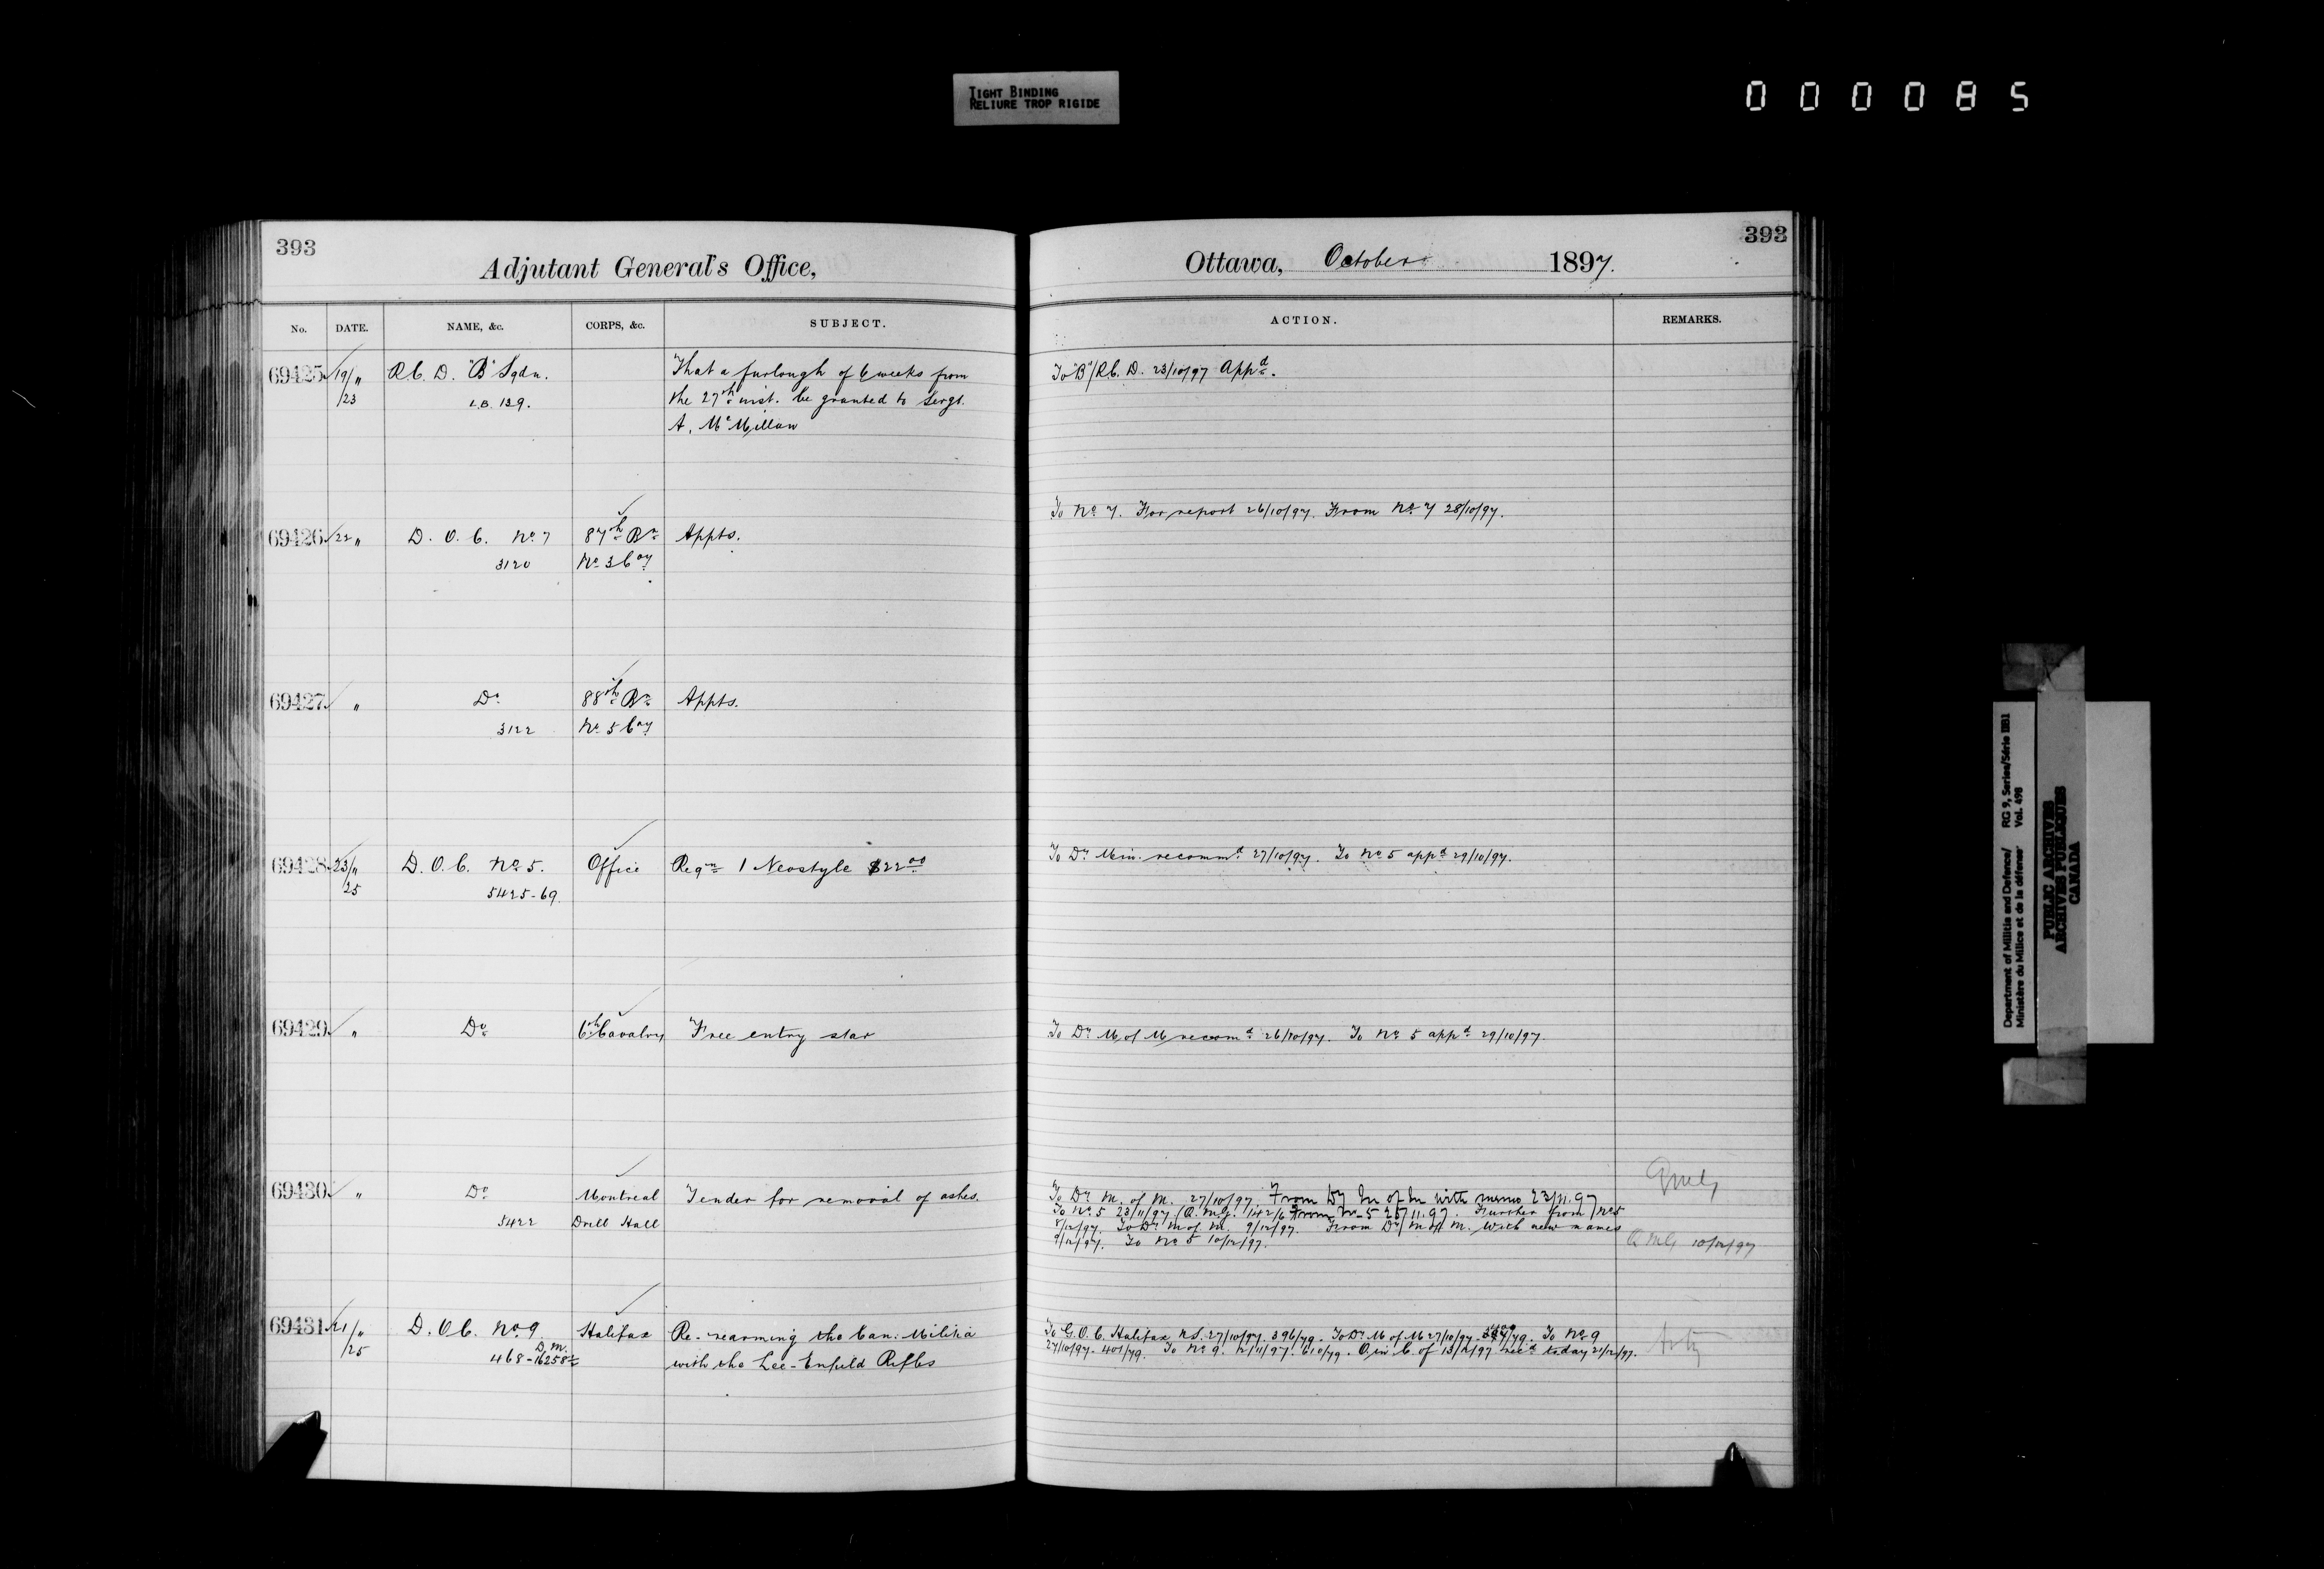 TIGHT BINDING
RELIURE TROP RIGIDE
000085
393
Adjutant General's Office,
No. DATE. NAME, &c. CORPS, &c. SUBJECT.
69425 19/" R.C.D. "B" Sqdn. That a furlough of 6 weeks from
/23 L.B. 129. the 27th inst. be granted to Sergt.
A. McMillan
69426 22 " D.O.C. No 7 87th Bn Appts.
3120 No 3 Coy
69427 " Do 88th Bn Appts.
3122 No 5 Coy
69428 23/" D.O.C. No 5. Office Reqn 1 Neostyle $22.00
25 5425-69.
69429 " Do 6th Cavalry Free entry star
69430 " Do Montreal Tender for removal of ashes.
5422 Drill Hall
69431 21/" D.O.C. No 9 Halifax Re-rearming the Can: Militia
/25 D.M. 468-16258½ with the Lee-Enfield Rifles
Ottawa, October 1897.
393
ACTION. REMARKS.
To "B"/R.C.D. 23/10/97 Appd.
To No 7. For report 26/10/97. From No 7 28/10/97.
To Dy Min. recommd 27/10/97. To No 5 appd 29/10/97.
To Dy M of M recomd 26/10/97. To No 5 appd 29/10/97.
To Dy M. of M. 27/10/97. From Dy M of M with memo 23/11.97
To No 5 23/11/97 (Q.M.G. 142/6 From No 5 25/11.97. Further from No 5
8/12/97. To Dy M of M. 9/12/97. From Dy M of M. with new names
9/12/97. To No 5 10/12/97.
QMG 10/12/97
To G.O.C. Halifax N.S. 27/10/97. 396/79. To Dy M of M 27/10/97 To No 9
27/10/97- 401/79. To No 9. 12/11/97. 610/79. O in C of 13/12/97 recd today 21/12/97.
Arty
Department of Militia and Defence/ RG 9, Series/Série IIB1
Ministère du Milice et de la défense Vol. 498
PUBLIC ARCHIVES
ARCHIVES PUBLIQUES
CANADA